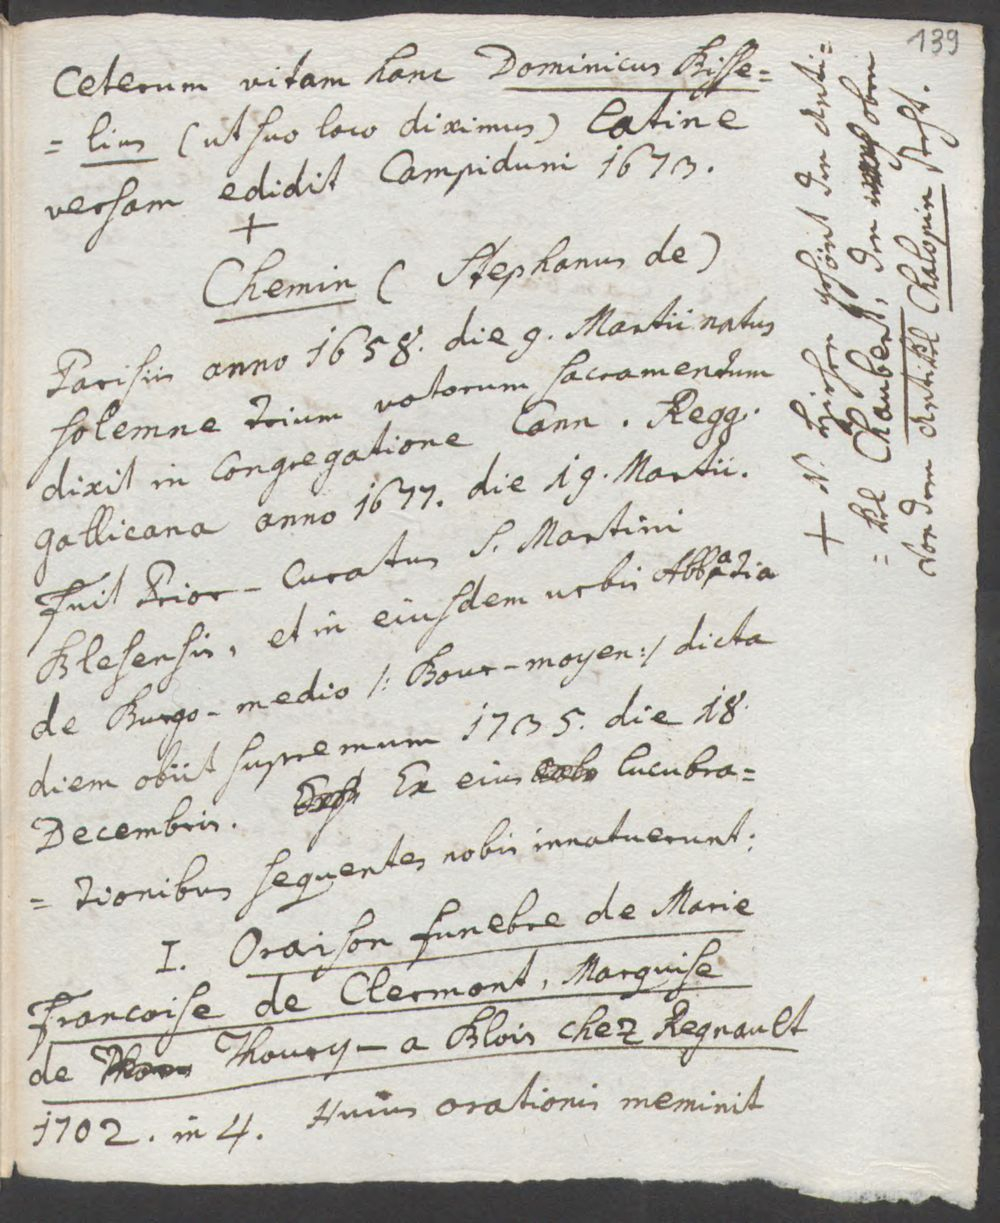 139
Ceterum vitam hanc Dominicus Bisse=
= lius (ut suo loco diximus) Latine
versam edidit Campiduni 1673.
+
Chemin (Stephanus de)
Parisiis anno 1658. die 9. Martii natus
solemne trium votorum sacramentum
dixit in Congregatione Cann. Regg.
gallicana anno 1677. die 19. Martii.
Fuit Prior-Curatus S. Martini
Blesensis, et in eiusdem urbis Abbatia
de Burgo-medio /: Bour-moyen:/ dicta
diem obiit supremum 1735. die 18.
Decembris. Ex eius lucubra=
= tionibus sequentes nobis innotuerunt:
I. Oraison funebre de Marie
Francoise de Clermont, Marquise
de Thoury - a Blois chez Regnault
1702. in 4. Huius orationis meminit
+ N. hieher gehört der Arti=
= kel Chaubert, der oben
vor dem Artikel Chalopin steht.